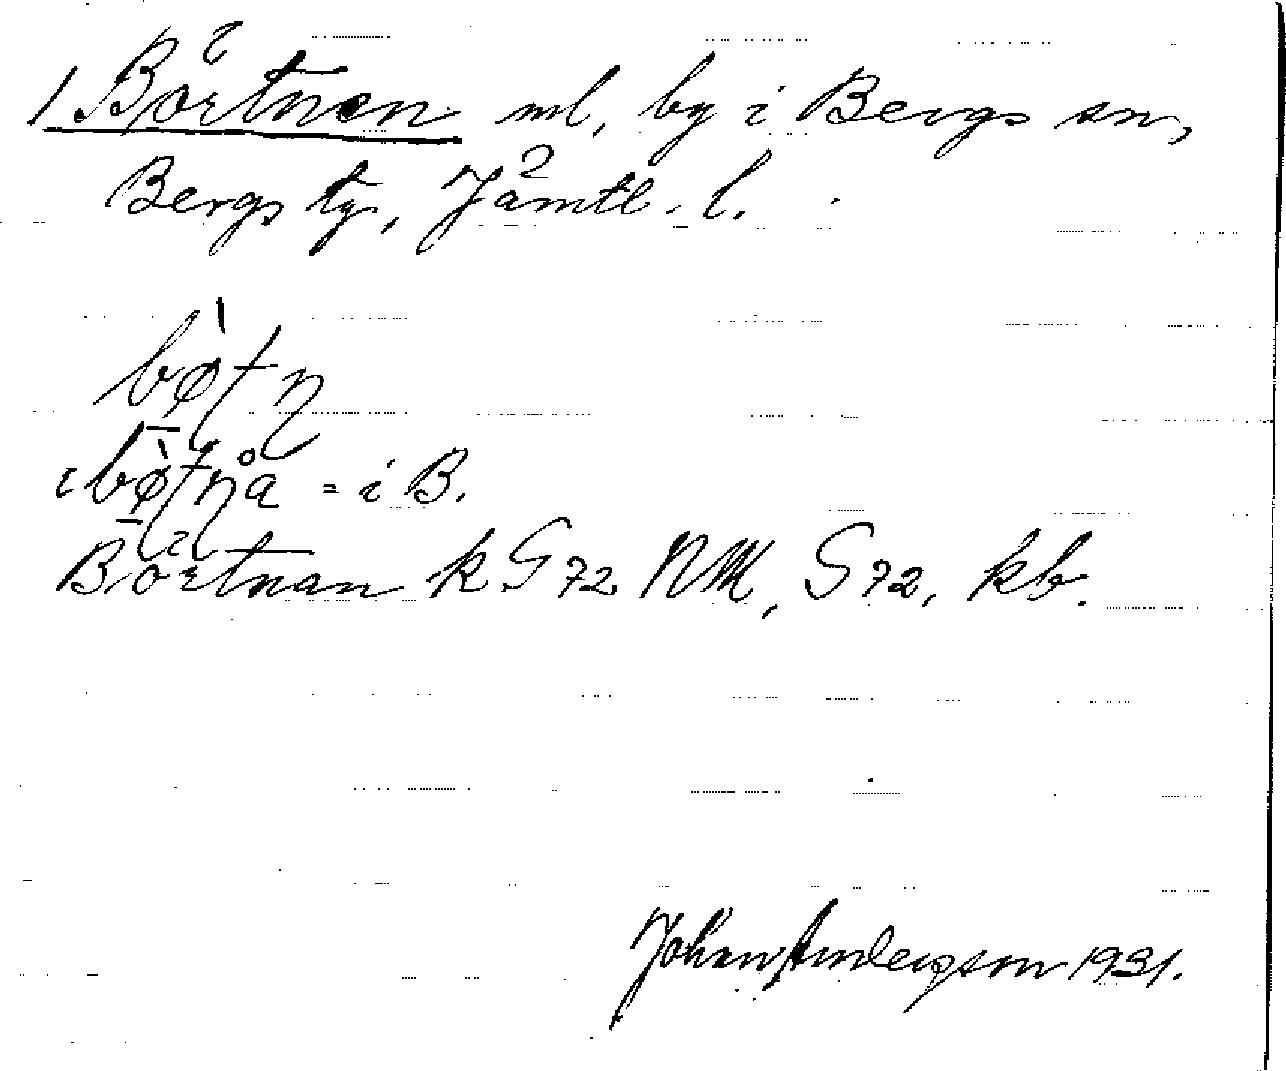 1 Börtnen ml, by i Bergs sn,
Bergs tg, Jämtl. l.
bø̀ʈɳ
ɩ bø̀ʈɳå = i B.
Börtnan k G72 NM, S72, kb.
Johan Anderson 1931.